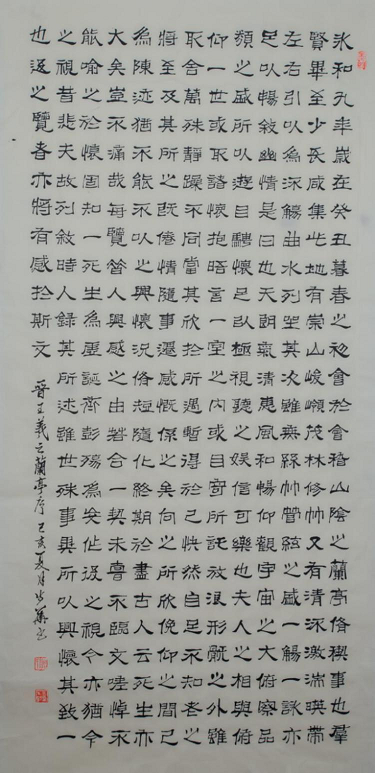 永和九年歲在癸丑暮春之初會於會稽山陰之蘭亭脩禊事也羣
賢畢至少長咸集此地有崇山峻嶺茂林修竹又有清流激湍暎帶
左右引以為流觴曲水列坐其次雖無絲竹管絃之盛一觴一詠亦
足以暢敘幽情是日也天朗氣清惠風和暢仰觀宇宙之大俯察品
類之盛所以遊目騁懷足以極視聽之娛信可樂也夫人之相與俯
仰一世或取諸懷抱晤言一室之內或因寄所託放浪形骸之外雖
取舍萬殊靜躁不同當其欣於所遇暫得於己快然自足不知老之
將至及其所之既倦情隨事遷感慨係之矣向之所欣俛仰之間已
為陳迹猶不能不以之興懷況脩短隨化終期於盡古人云死生亦
大矣豈不痛哉每覽昔人興感之由若合一契未嘗不臨文嗟悼不
能喻之於懷固知一死生為虛誕齊彭殤為妄作後之視今亦猶今
之視昔悲夫故列敘時人錄其所述雖世殊事異所以興懷其致一
也後之覽者亦將有感於斯文
晉王羲之蘭亭序 己亥夏月